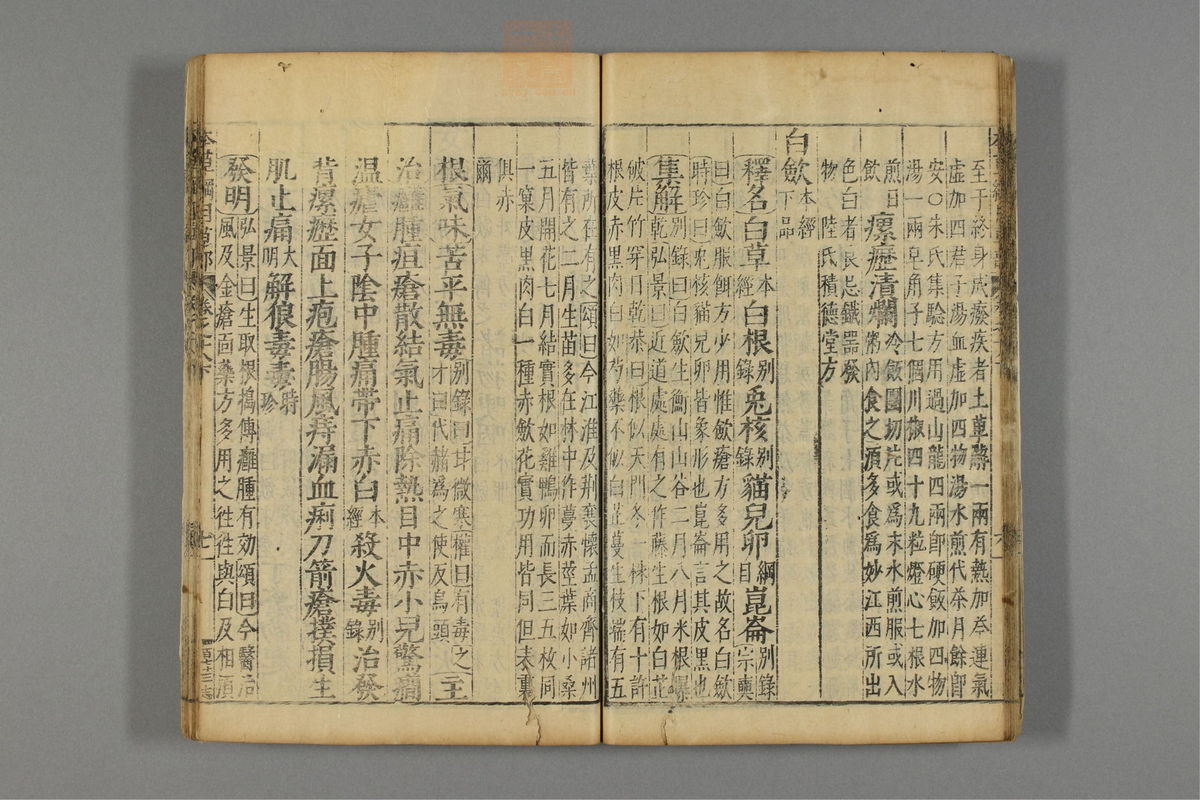 至于終身成癈疾者土萆薢一兩有熱加芩連氣
虛加四君子湯血虛加四物湯水煎代茶月餘卽
安○朱氏集驗方用過山龍四兩卽硬飯加四物
湯一兩皂角子七個川椒四十九粒燈心七根水
煎日飲 瘰癧潰爛 冷飯團切片或爲末水煎服或入粥內食之須多食爲妙江西所出
色白者良忌鐵器發
物 陸氏積德堂方
白歛 本經下品
釋名 白草 本經 白根 別錄 兎核 別錄 貓兒卵 綱目 崑崙 別錄 宗奭
曰白歛服餌方少用惟歛瘡方多用之故名白歛
時珍曰兎核貓兒卵皆象形也崑崙言其皮黑也
集解 別錄曰白歛生衡山山谷二月八月采根曝乾弘景曰近道處處有之作藤生根如白芷
破片竹穿日乾恭曰根似天門冬一株下有十許
根皮赤黑肉白如芍藥不似白芷蔓生枝端有五
葉所在有之頌曰今江淮及荆襄懷孟商齊諸州
皆有之二月生苗多在林中作蔓赤莖葉如小桑
五月開花七月結實根如雞鴨卵而長三五枚同
一窠皮黑肉白一種赤歛花實功用皆同但表裏
俱赤
爾
根氣味苦平無毒 別錄曰甘微寒權曰有毒之才曰代赭爲之使反烏頭 主
治癰腫疽瘡散結氣止痛除熱目中赤小兒驚癇
温瘧女子陰中腫痛帶下赤白 本經 殺火毒 別錄 治發
背瘰癧面上疱瘡腸風痔漏血痢刀箭瘡撲損生
肌止痛 大明 解狼毒毒 時珍
發明 弘景曰生取根搗傅癰腫有効頌曰今醫治風及金瘡面藥方多用之往往與白及相須